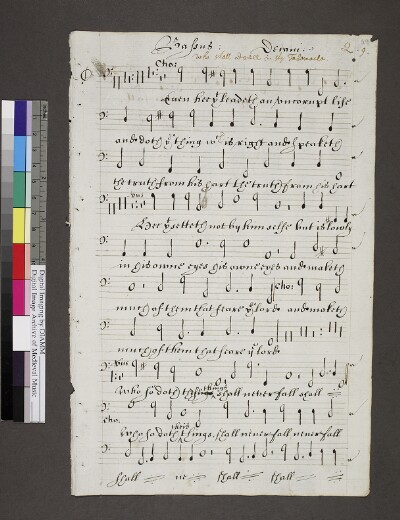 Bassus: Decani: 29
who shall dwell in thy Tabernacle
Cho:
Even hee yt leadeth an uncorrupt life
and doth ye thing wch is right and speaketh
the truth from his hart the truth from his hart
Hee yt setteth not by himselfe but is lowly
in his owne eyes his owne eyes and maketh
Cho:
much of them that feare ye Lord and maketh
much of them that feare ye lord
Who so doth these things shall never fall shall
Cho:
Who so doth these things shall never fall never fall
shall ne shall shall
Digital Imaging by DIAMM
Digital Image Archive of Medieval Music